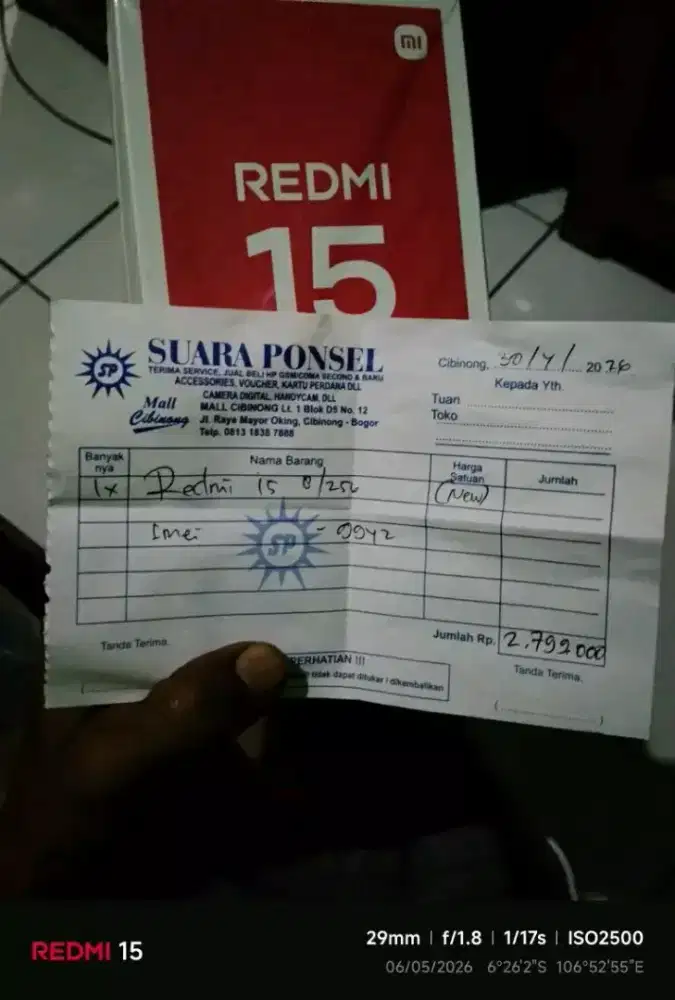 mi
REDMI
15
SP
SUARA PONSEL
TERIMA SERVICE, JUAL BELI HP GSM/CDMA SECOND & BARU
ACCESSORIES, VOUCHER, KARTU PERDANA DLL
CAMERA DIGITAL, HANDYCAM, DLL
Mall Cibinong
MALL CIBINONG Lt. 1 Blok D5 No. 12
Jl. Raya Mayor Oking, Cibinong - Bogor
Telp. 0813 1838 7888
Cibinong, 30/4/ 2026
Kepada Yth.
Tuan
Toko
Banyak nya Nama Barang Harga Satuan Jumlah
1x Redmi 15 8/256 (New)
Imei - 9942
SP
Jumlah Rp. 2.799.000
Tanda Terima.
PERHATIAN !!!
tidak dapat ditukar / dikembalikan
Tanda Terima,
(....................)
REDMI 15
29mm | f/1.8 | 1/17s | ISO2500
06/05/2026 6°26'2"S 106°52'55"E